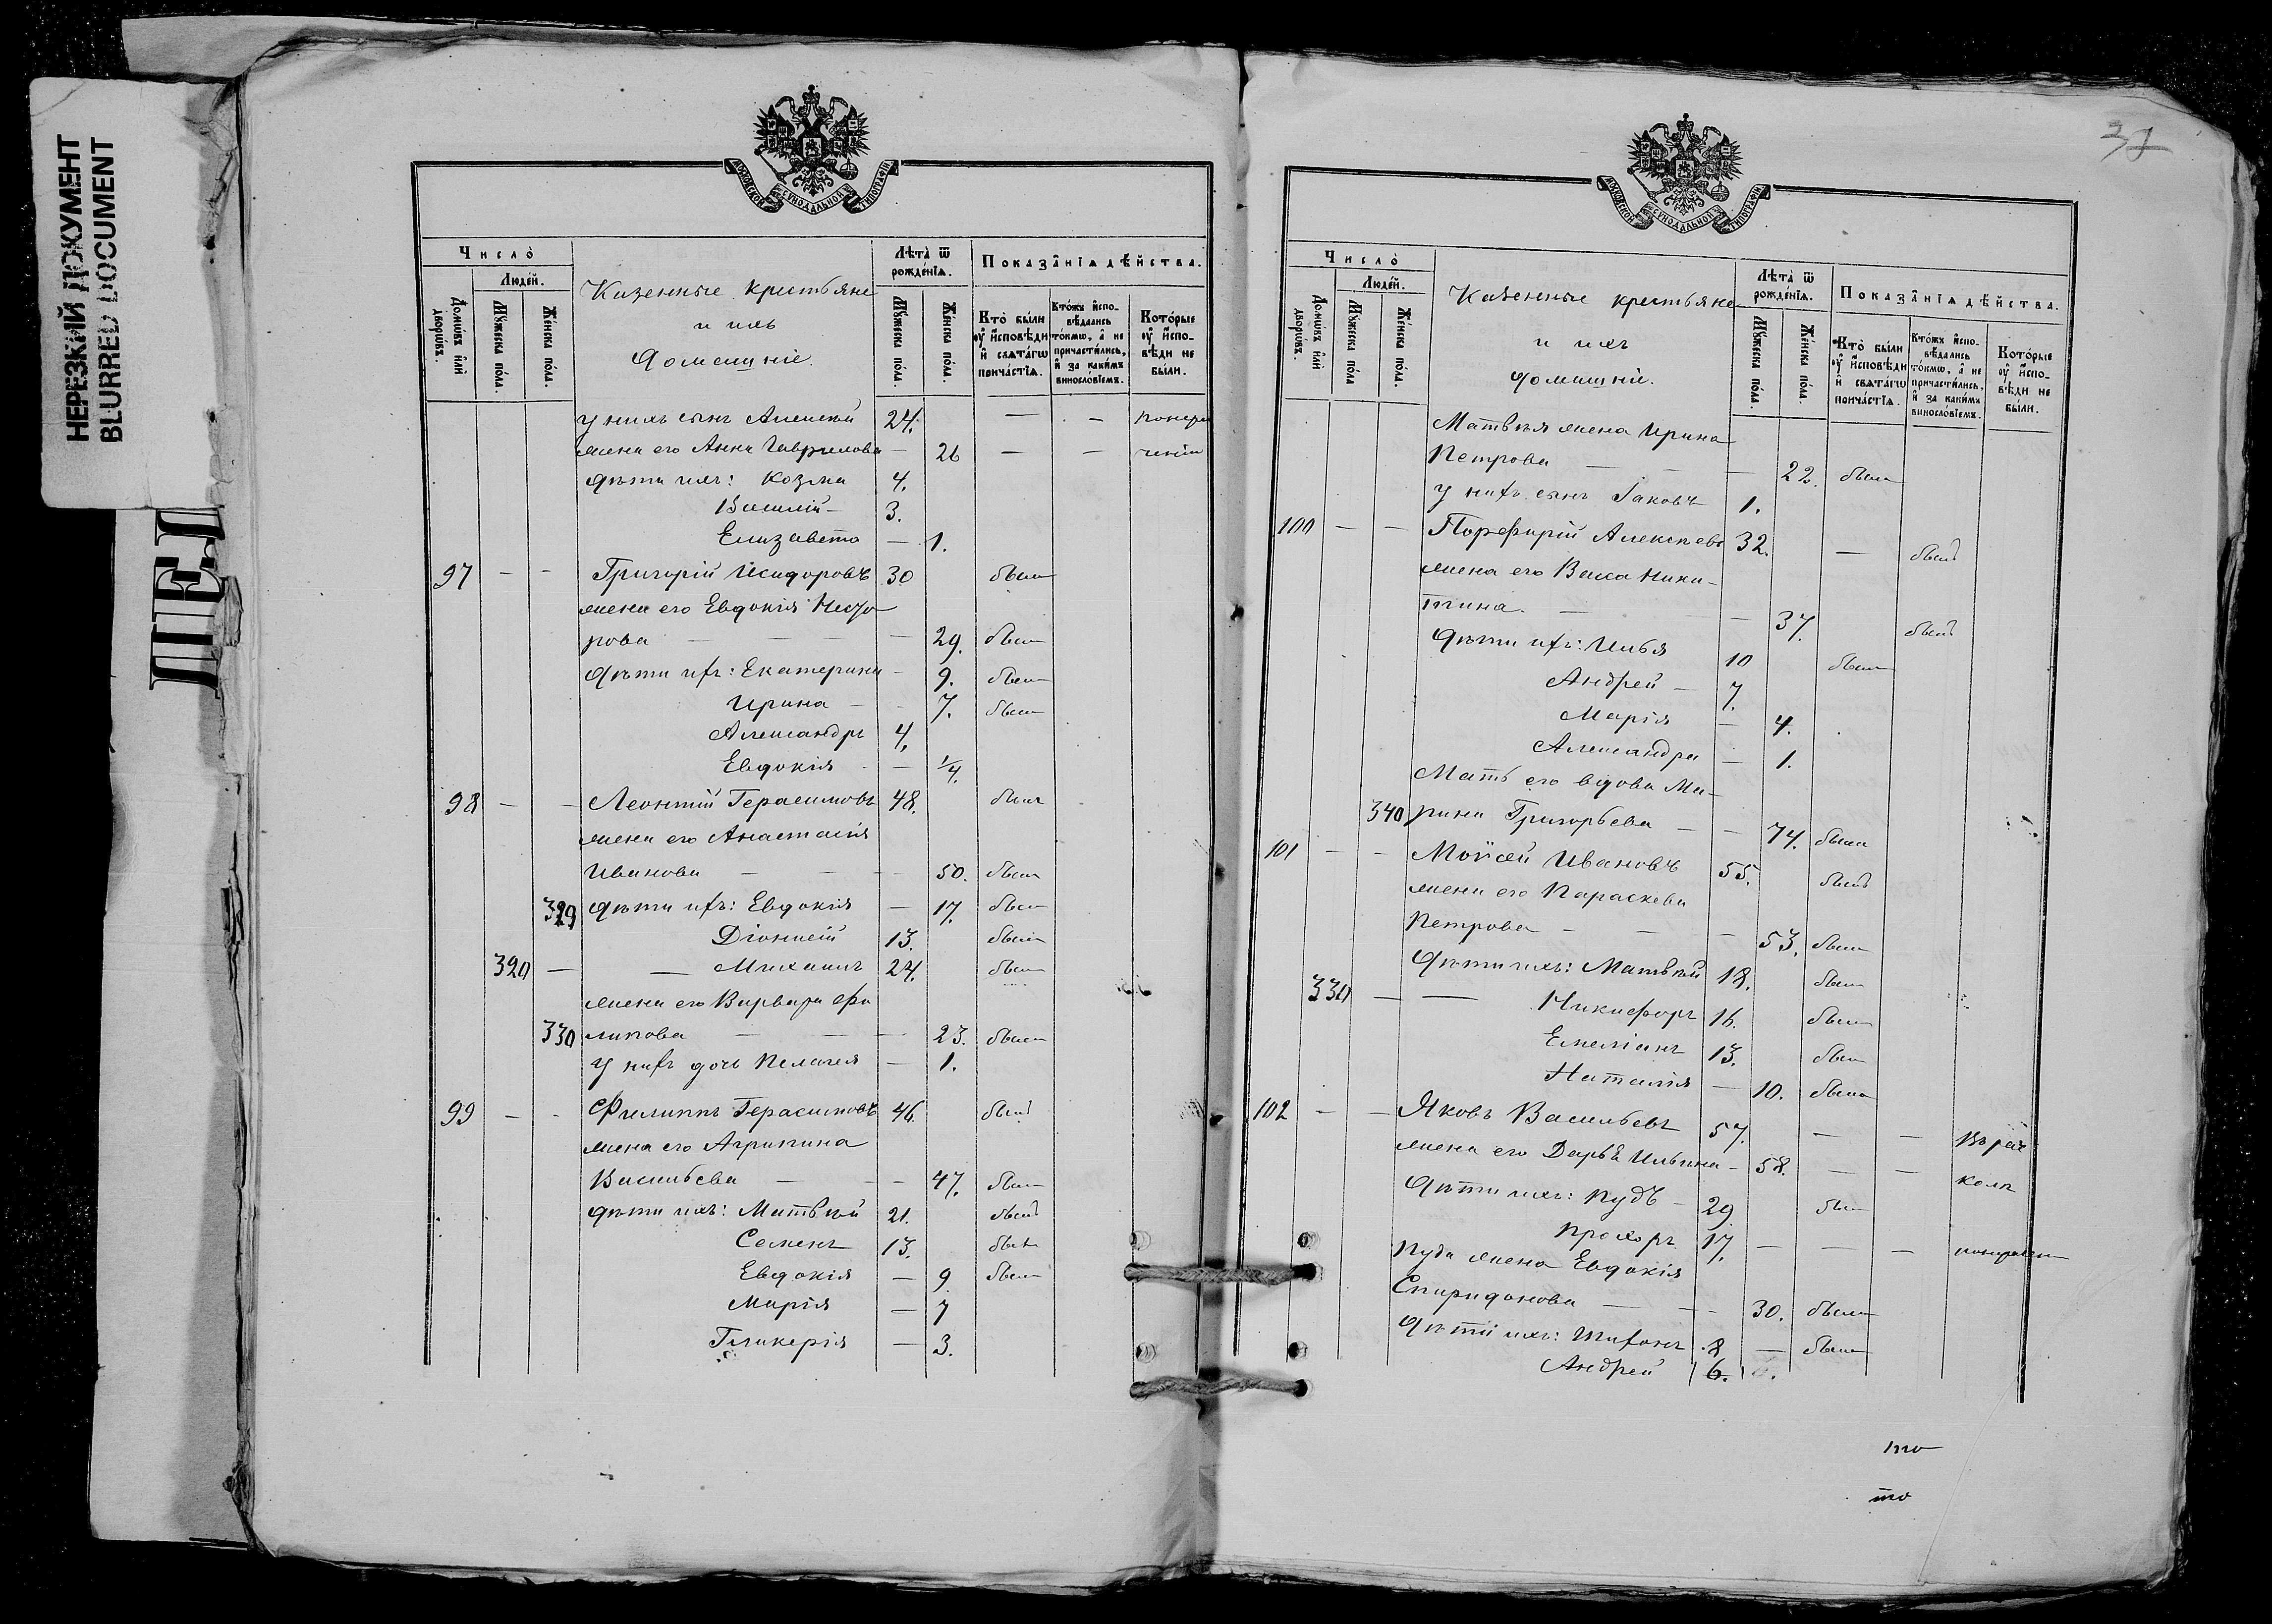 НЕРЕЗКИЙ ДОКУМЕНТ
BLURRED DOCUMENT
МОСКОВСКОЙ СѴНОДАЛЬНОЙ ТИПОГРАФІИ
Число̀
Людей.
Домѡвъ или дворѡвъ.
Мꙋжеска пола.
Женска пола.
Казенные крестьяне
и ихъ
домашніе.
Лѣта̀ ѿ рожденїѧ.
Мꙋжеска пола.
Женска пола.
Показанїѧ дѣйства.
Кто̀ были ᲂу҆ исповѣди и свѧтагѡ причастїѧ.
Ктожъ исповѣдались токмѡ, а не причастились, и за какимъ винословїемъ.
Которые ᲂу҆ исповѣди не были.
у нихъ сынъ Алексей 24. — —
жена его Анна Гаврилова — 26 — —
дѣти ихъ: Козма 4.
Василій — 3.
Елизавета — 1.
97 — — Григорій Исидоровъ 30 былъ
жена его Евдокія
рова — — — — 29. была
дѣти ихъ: Екатерина — 9. была
Ирина — — 7. была
Александръ 4.
Евдокія — 1/4.
98 — — Леонтій Герасимовъ 48. былъ
жена его Анастасія
Иванова — — — 50. была
329 дѣти ихъ: Евдокія — 17. была
Діонисій 13. былъ
320 — — Михаилъ 24. былъ
жена его Варвара Фи
330 липова — — — 23. была
у нихъ дочь Пелагея — 1.
99 — — Филиппъ Герасимовъ 46. былъ
жена его Агрипина
Васильева — — 47. была
дѣти ихъ: Матвѣй 21. былъ
Семенъ 13. былъ
Евдокія — 9. была
Марія — 7
Гликерія — 3.
37
МОСКОВСКОЙ СѴНОДАЛЬНОЙ ТИПОГРАФІИ
Число̀
Людей.
Домѡвъ или дворѡвъ.
Мꙋжеска пола.
Женска пола.
Казенные крестьяне
и ихъ
домашніе.
Лѣта̀ ѿ рожденїѧ.
Мꙋжеска пола.
Женска пола.
Показанїѧ дѣйства.
Кто̀ были ᲂу҆ исповѣди и свѧтагѡ причастїѧ.
Ктожъ исповѣдались токмѡ, а не причастились, и за какимъ винословїемъ.
Которые ᲂу҆ исповѣди не были.
Матвѣя жена Ирина
Петрова — — — 22. была
у нихъ сынъ Іаковъ 1.
100 — — Порфирій Алексѣевъ 32. — былъ
жена его Васса Ники-
тина. — — 37. былъ
дѣти ихъ: Илья 10 былъ
Андрей — 7.
Марія — 4.
Александра — 1.
Мать его вдова Ма-
340 рина Григорьева — — 74. была
101 — — Мойсей Ивановъ 55. былъ
жена его Параскева
Петрова — — — 53. была
дѣти ихъ: Матвѣй 18. былъ
330 — — Никифоръ 16. былъ
Емеліанъ 13. былъ
Наталія — 10. была
102 — — Яковъ Васильевъ 57. — — Въ рас
жена его Дарья Ильина — 58. — — колѣ
дѣти ихъ: Пудъ — 29 былъ
Прохоръ 17. — — —
Пуда жена Евдокія
Спиридонова — — — 30. была
дѣти ихъ: Тихонъ 8 — былъ
Андрей 6.
то
то